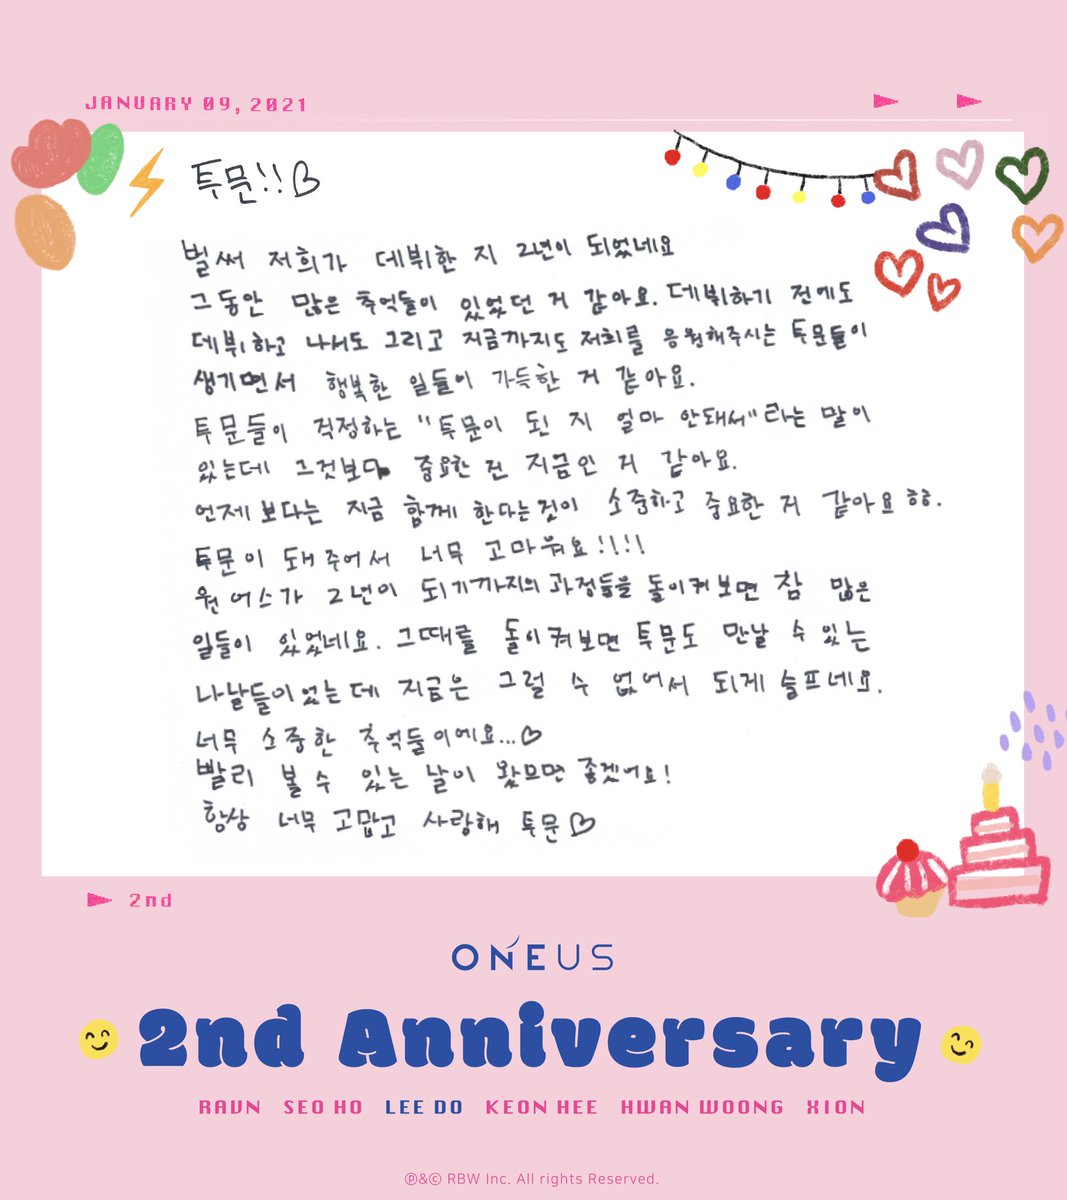 JANUARY 09, 2021
투문!!♡
벌써 저희가 데뷔한 지 2년이 되었네요
그동안 많은 추억들이 있었던 거 같아요. 데뷔하기 전에도
데뷔하고 나서도 그리고 지금까지도 저희를 응원해주시는 투문들이
생기면서 행복한 일들이 가득한 거 같아요.
투문들이 걱정하는 "투문이 된 지 얼마 안돼서"라는 말이
있는데 그것보다 중요한 건 지금인 거 같아요.
언제보다는 지금 함께 한다는것이 소중하고 중요한 거 같아요 ㅎㅎ.
투문이 돼 주어서 너무 고마워요!!!!
원어스가 2년이 되기까지의 과정들을 돌이켜보면 참 많은
일들이 있었네요. 그때를 돌이켜보면 투문도 만날 수 있는
나날들이었는데 지금은 그럴 수 없어서 되게 슬프네요.
너무 소중한 추억들이에요...♡
빨리 볼 수 있는 날이 왔으면 좋겠어요!
항상 너무 고맙고 사랑해 투문♡
2nd
ONEUS
2nd Anniversary
RAVN SEO HO LEE DO KEON HEE HWAN WOONG XION
℗&© RBW Inc. All rights Reserved.